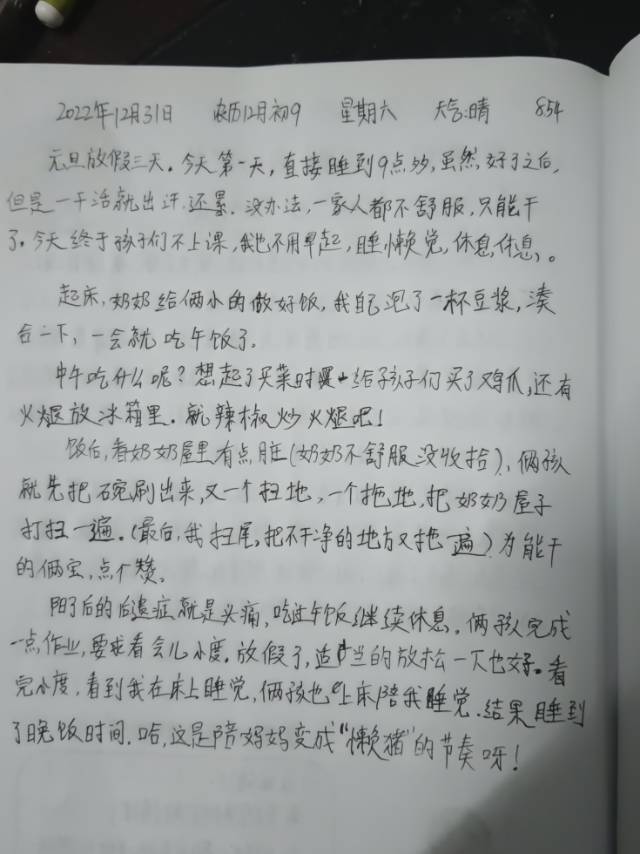 2022年12月31日 农历12月初9 星期六 天气:晴 854
元旦放假三天。今天第一天,直接睡到9点多,虽然好了之后,
但是一干活就出汗,还累。没办法,一家人都不舒服,只能干
了。今天终于孩子们不上课,我也不用早起,睡懒觉,休息,休息。
起床,奶奶给俩小的做好饭,我自己泡了一杯豆浆,凑
合一下,一会就吃午饭了。
中午吃什么呢?想起了买菜时给孩子们买了鸡爪,还有
火腿放冰箱里。就辣椒炒火腿吧!
饭后,看奶奶屋里有点脏(奶奶不舒服没收拾),俩孩
就先把碗刷出来,又一个扫地,一个拖地,把奶奶屋子
打扫一遍。(最后,我扫尾,把不干净的地方又拖一遍)为能干
的俩宝,点个赞。
阳了后的后遗症就是头痛,吃过午饭继续休息。俩孩完成
一点作业,要求看会儿小度。放假了,适当的放松一下也好。看
完小度,看到我在床上睡觉,俩孩也上床陪我睡觉.结果睡到
了晚饭时间.哈,这是陪妈妈变成“懒猪”的节奏呀!